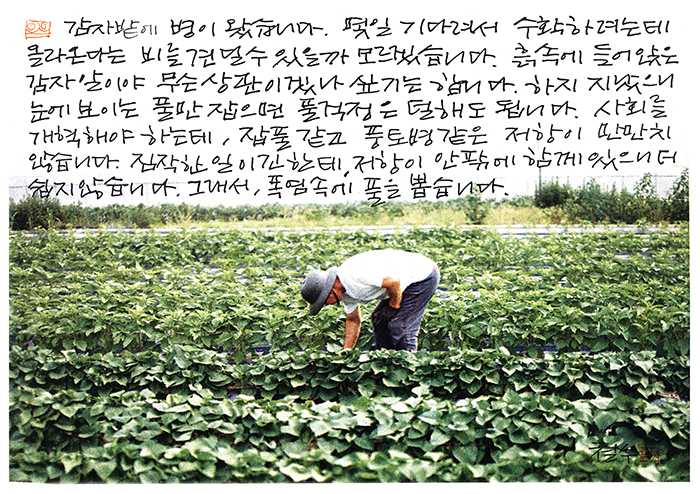 감자밭에 병이 왔습니다. 몇일 기다려서 수확하려는데
올라온다는 비를 견딜 수 있을까 모르겠습니다. 흙속에 들어앉은
감자알이야 무슨 상관이겠나 싶기는 합니다. 하지 지났으니
눈에 보이는 풀만 잡으면 풀걱정은 덜해도 됩니다. 사회를
개혁해야 하는데, 잡풀같고 풍토병같은 저항이 만만치
않습니다. 짐작한 일이긴 한데, 저항이 안팎에 함께 있으니 더
쉽지 않습니다. 그래서, 폭염속에 풀을 뽑습니다.
철수